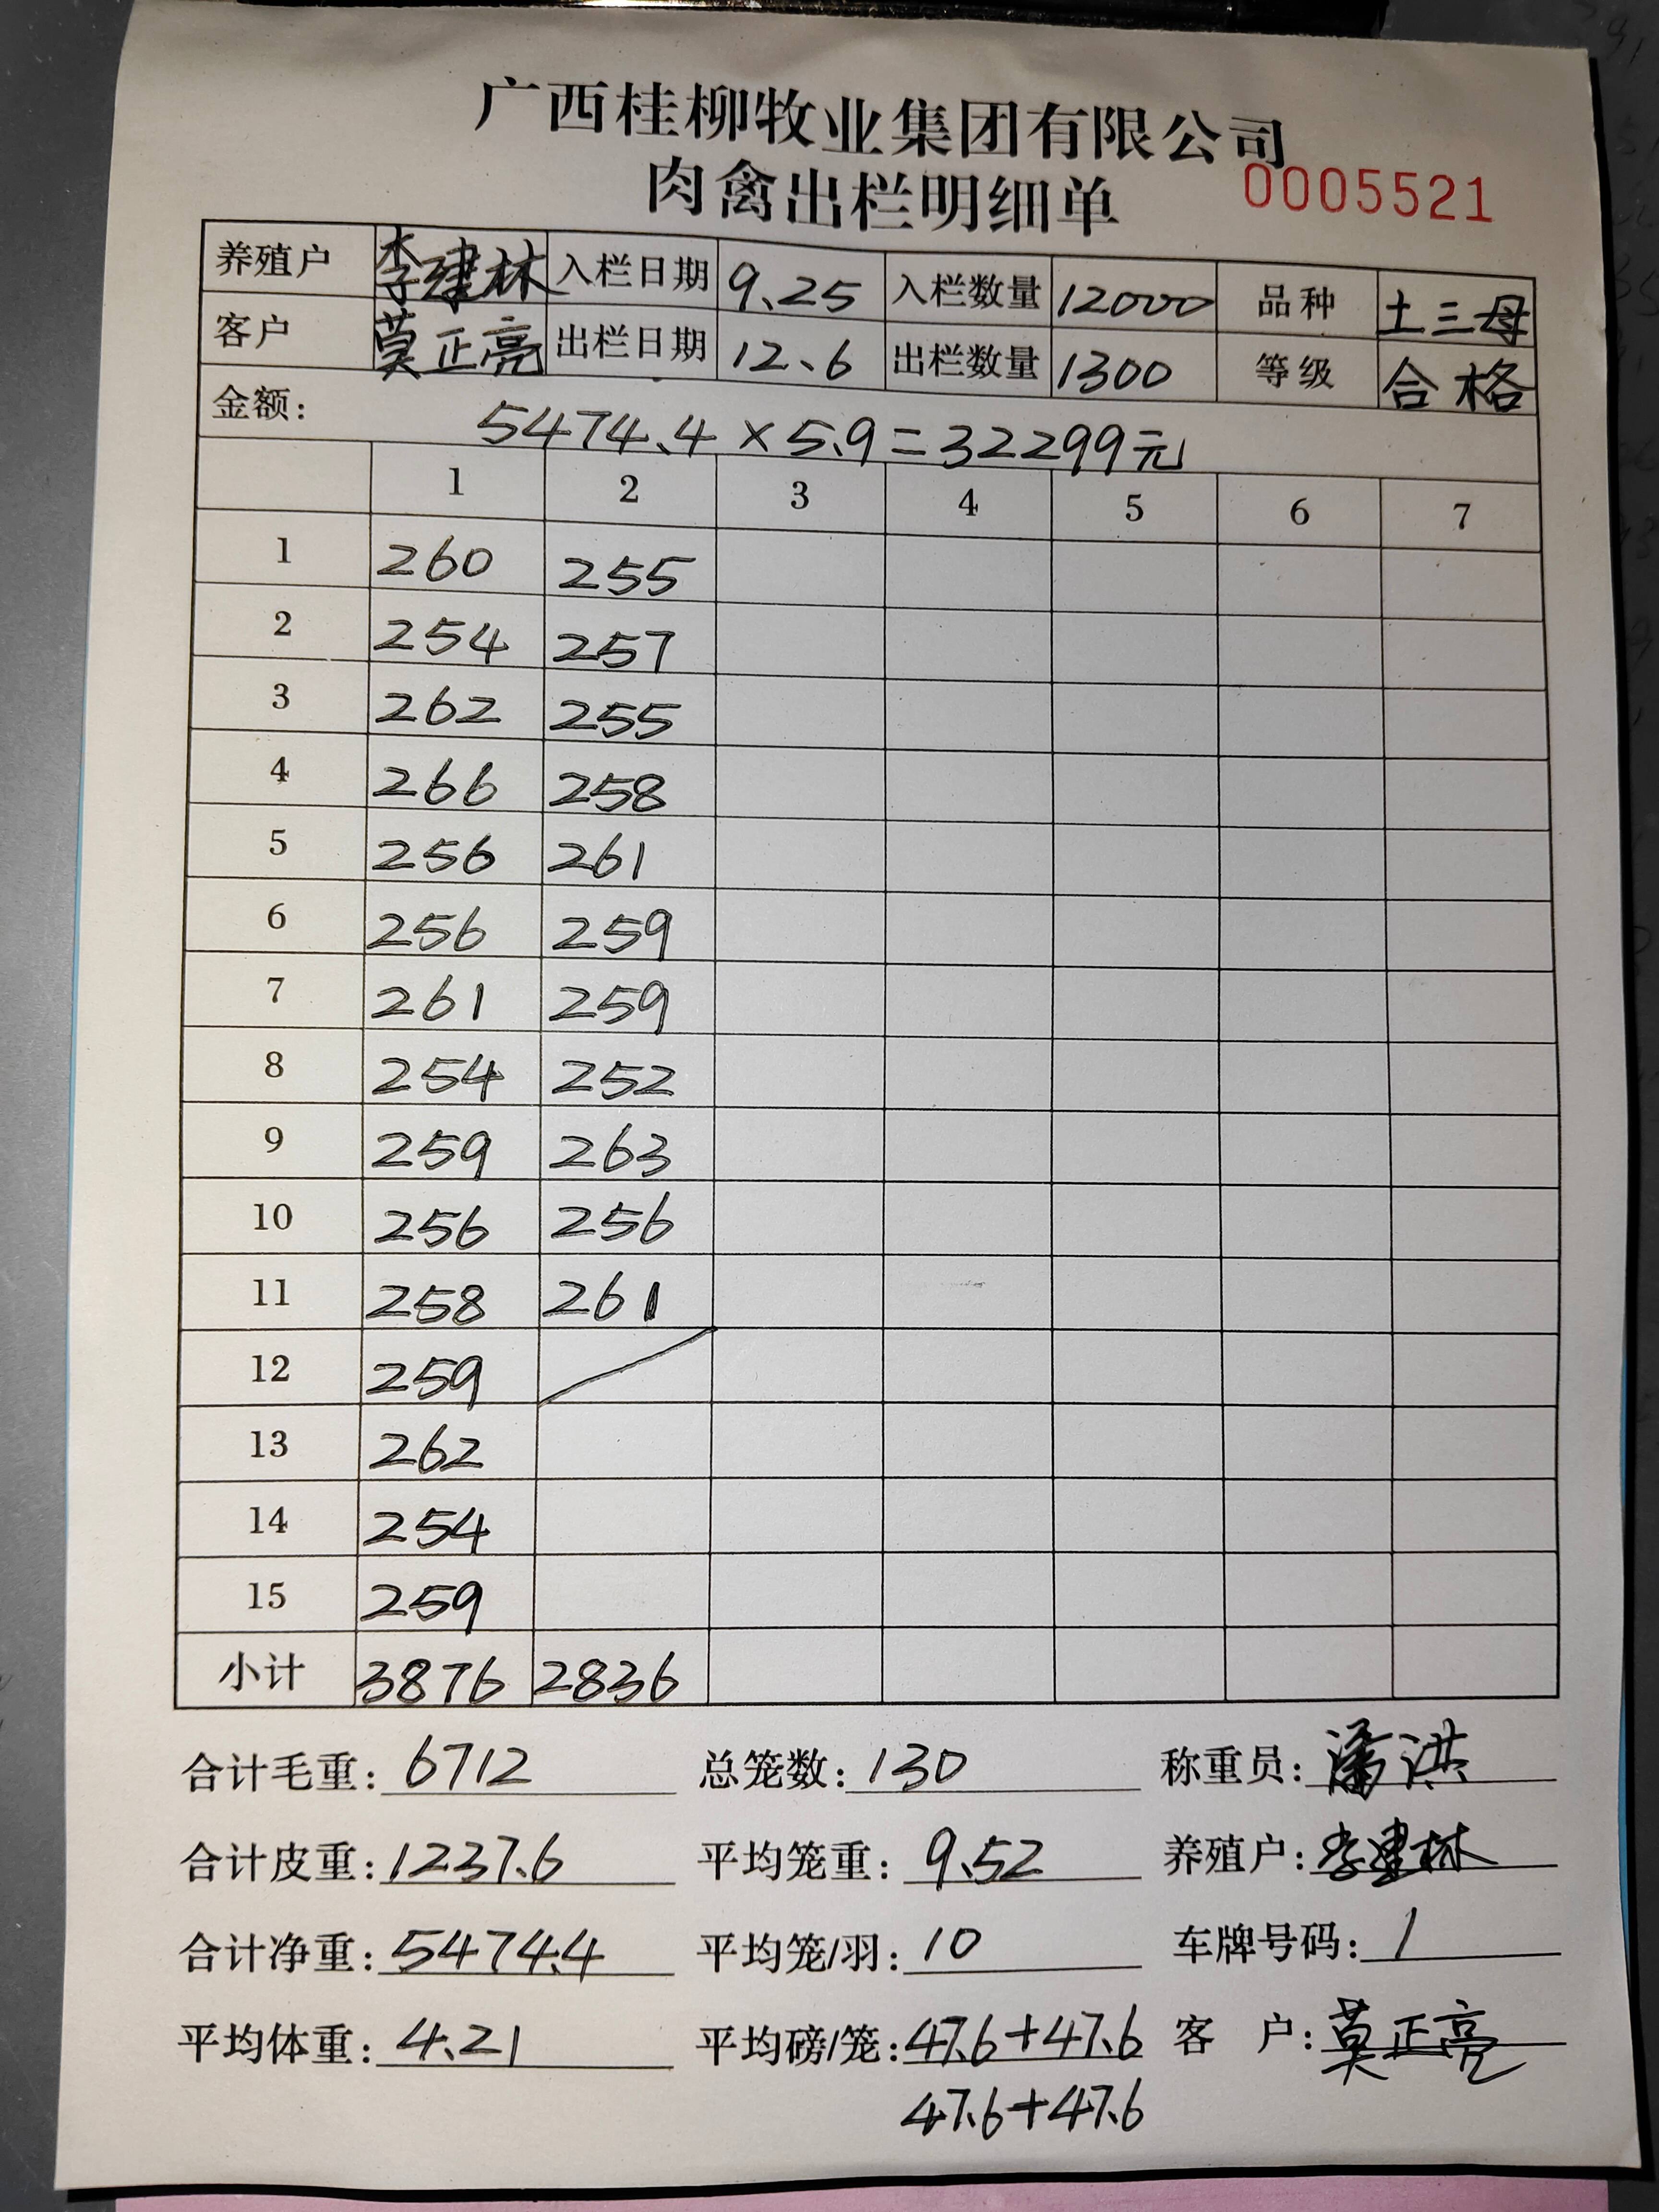 广西桂柳牧业集团有限公司
肉禽出栏明细单 0005521
养殖户 李建林 入栏日期 9.25 入栏数量 12000 品种 土三母
客户 莫正亮 出栏日期 12.6 出栏数量 1300 等级 合格
金额: 5474.4×5.9=32299元
1 2 3 4 5 6 7
1 260 255
2 254 257
3 262 255
4 266 258
5 256 261
6 256 259
7 261 259
8 254 252
9 259 263
10 256 256
11 258 261
12 259
13 262
14 254
15 259
小计 3876 2836
合计毛重: 6712 总笼数: 130 称重员: 潘洪
合计皮重: 1237.6 平均笼重: 9.52 养殖户: 李建林
合计净重: 5474.4 平均笼/羽: 10 车牌号码: 1
平均体重: 4.21 平均磅/笼: 47.6+47.6 客 户: 莫正亮
47.6+47.6